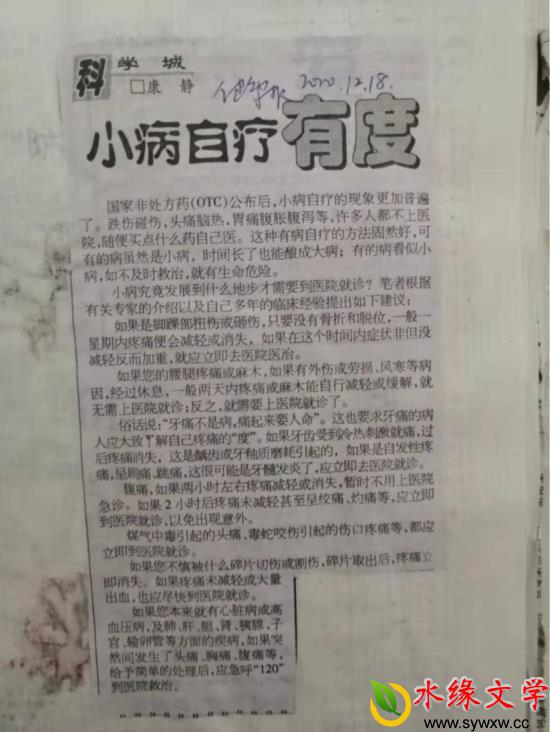 科学城
□康 静
2020.12.18.
小病自疗有度
国家非处方药(OTC)公布后,小病自疗的现象更加普遍
了。跌伤碰伤,头痛脑热,胃痛腹胀腹泻等,许多人都不上医
院,随便买点什么药自己医。这种有病自疗的方法固然好,可
有的病虽然是小病,时间长了也能酿成大病;有的病看似小
病,如不及时救治,就有生命危险。
小病究竟发展到什么地步才需要到医院就诊?笔者根据
有关专家的介绍以及自己多年的临床经验提出如下建议:
如果是脚踝部扭伤或砸伤,只要没有骨折和脱位,一般一
星期内疼痛便会减轻或消失,如果在这个时间内症状非但没
减轻反而加重,就应立即去医院医治。
如果您的腰腿疼痛或麻木,如果有外伤或劳损、风寒等病
因,经过休息,一般两天内疼痛或麻木能自行减轻或缓解,就
无需上医院就诊;反之,就需要上医院就诊了。
俗话说:“牙痛不是病,痛起来要人命”。这也要求牙痛的病
人应大致了解自己疼痛的“度”。如果牙齿受到冷热刺激就痛,过
后疼痛消失,这是龋齿或牙釉质磨耗引起的,如果是自发性疼
痛,呈剧痛、跳痛,这很可能是牙髓发炎了,应立即去医院就诊。
腹痛,如果两小时左右疼痛减轻或消失,暂时不用上医院
急诊。如果2小时后疼痛未减轻甚至呈绞痛、灼痛等,应立即
到医院就诊,以免出现意外。
煤气中毒引起的头痛、毒蛇咬伤引起的伤口疼痛等,都应
立即到医院就诊。
如果您不慎被什么碎片切伤或割伤,碎片取出后,疼痛立
即消失。如果疼痛未减轻或大量
出血,也应尽快到医院就诊。
如果您本来就有心脏病或高
血压病,及肺、肝、胆、肾、胰腺、子
宫、输卵管等方面的疾病,如果突
然间发生了头痛、胸痛、腹痛等,
给予简单的处理后,应急呼“120”
到医院救治。
水缘文学
www.sywxw.cc